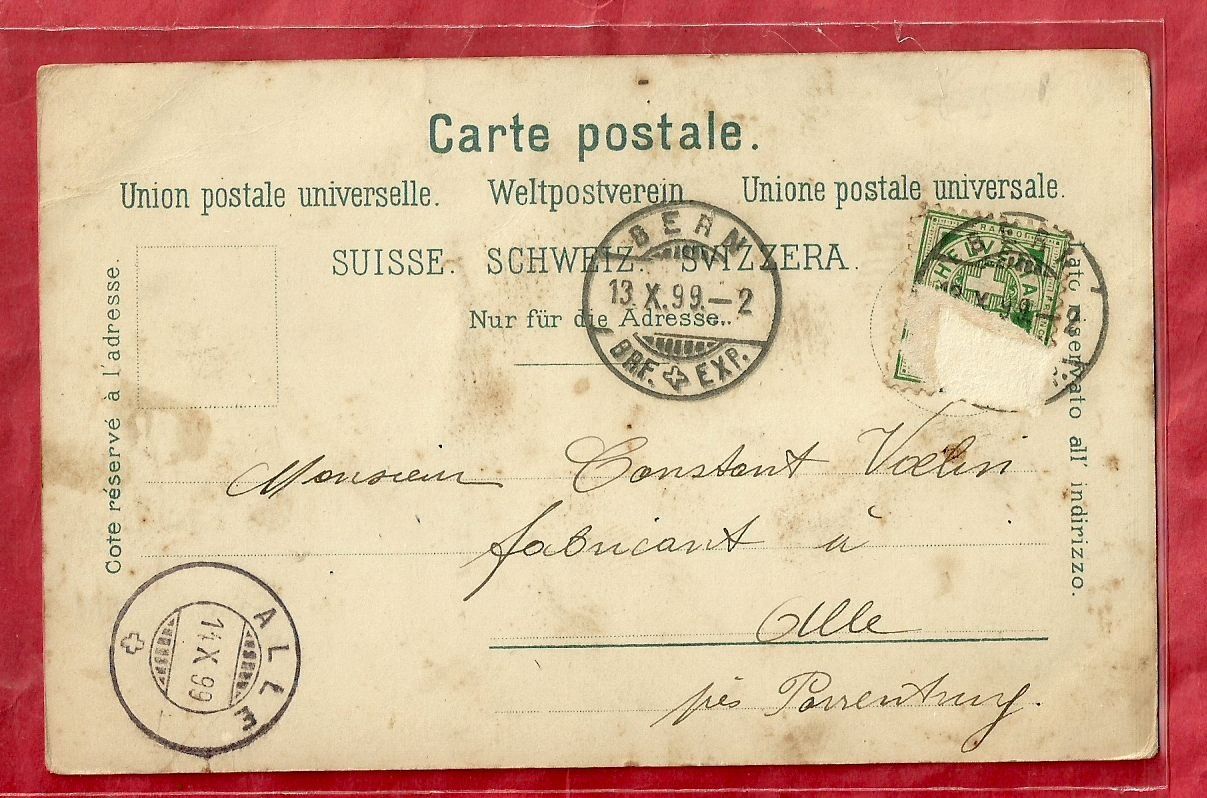 Carte postale.
Union postale universelle. Weltpostverein Unione postale universale.
SUISSE. SCHWEIZ. SVIZZERA.
Nur für die Adresse.
Côte réservé à l'adresse.
Lato riservato all' indirizzo.
BERN
13.X.99.–2
BRF. EXP.
BERN
13.X.99.–2
FRANCO
HELVETIA
Monsieur Constant Vœlin
fabricant à
Alle
près Porrentruy.
ALLE
14.X.99